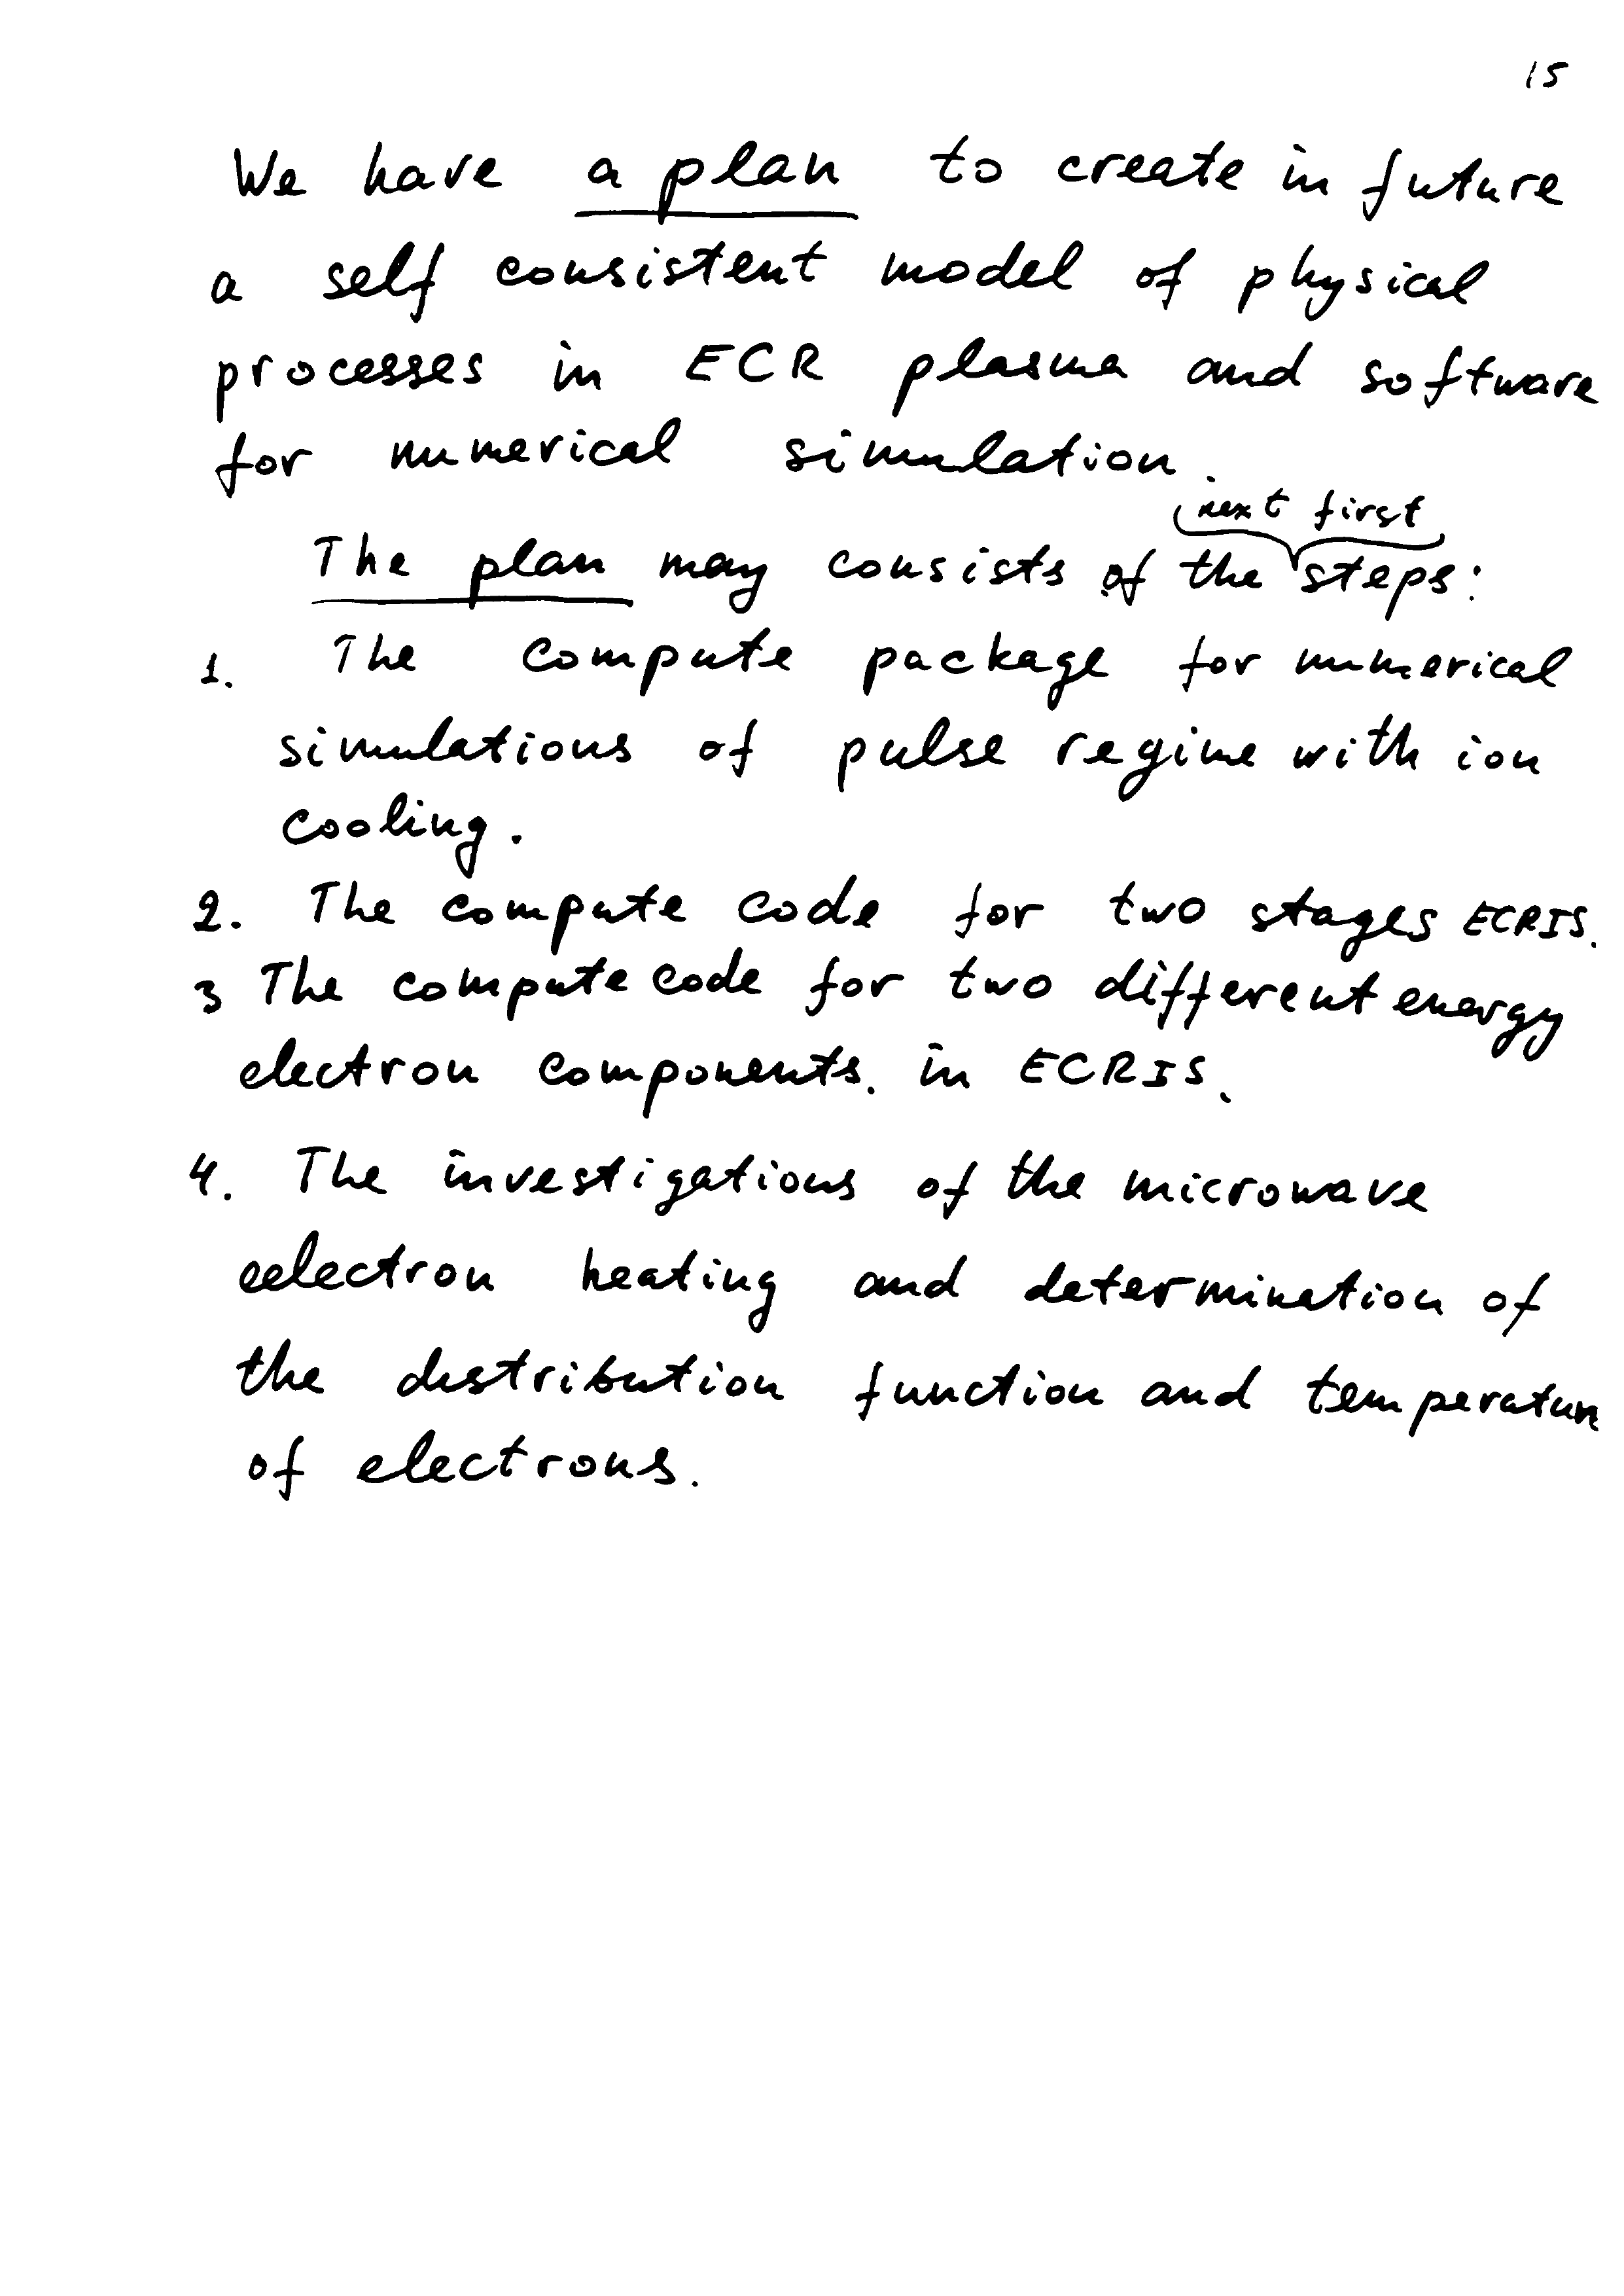 15
We have a plan to create in future
a self consistent model of physical
processes in ECR plasma and software
for numerical simulation.
next first
The plan may consists of the steps:
1. The compute package for numerical
simulations of pulse regime with ion
cooling.
2. The compute code for two stages ECRIS.
3 The compute code for two different energy
electron components. in ECRIS.
4. The investigations of the microwave
eelectron heating and determination of
the distribution function and temperature
of electrons.